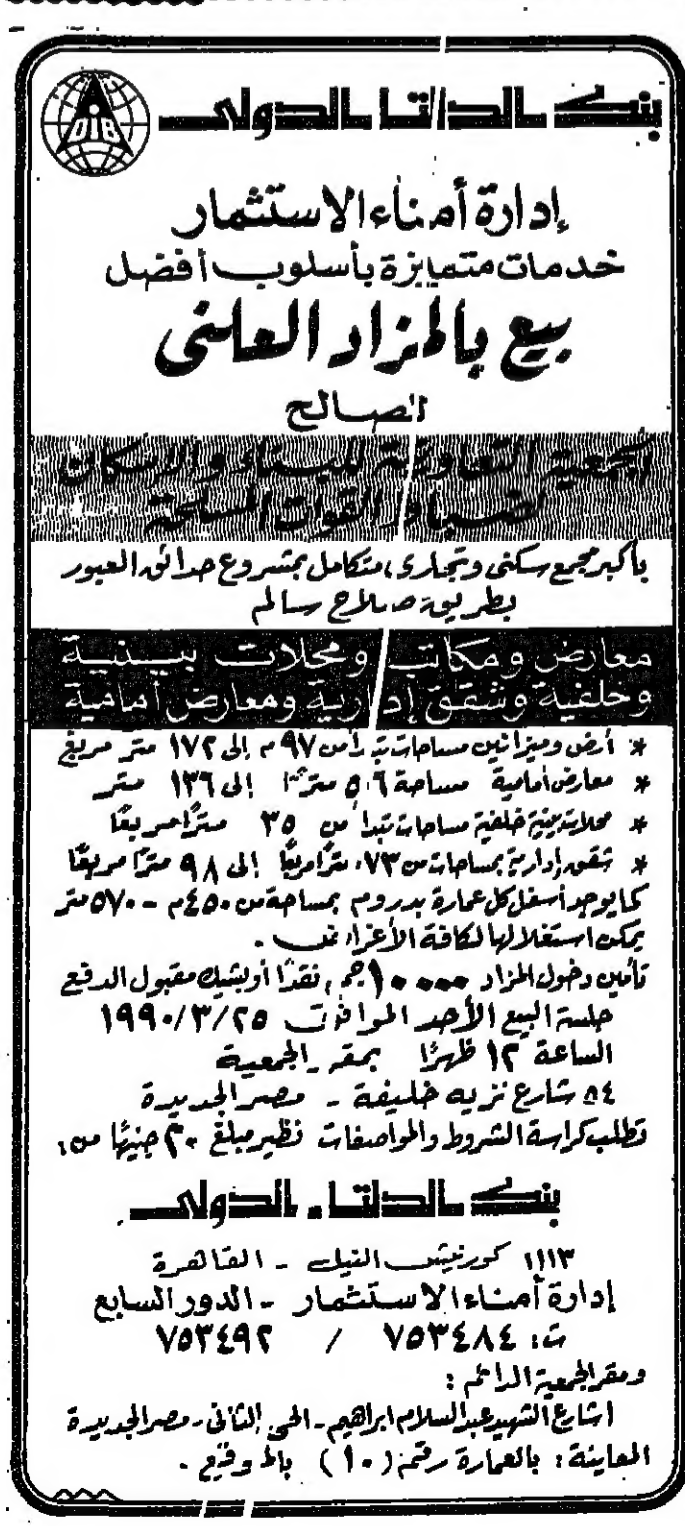 بنك الدلتا الدولى
DIB
إدارة أمناء الاستثمار
خدمات متمايزة بأسلوب أفضل
بيع بالمزاد العلنى
لصالح
الجمعية التعاونية للبناء والاسكان
لضباط القوات المسلحة
بأكبر مجمع سكنى وتجارى متكامل بمشروع حدائق العبور
بطريق صلاح سالم
معارض ومكاتب ومحلات بينية
وخلفية وشقق إدارية ومعارض أمامية
* أرضى وميزانين مساحات تبدأ من ٩٧ م إلى ١٧٢ متر مربع
* معارض أمامية مساحة ٥٠٦ مترًا إلى ١٣٦ متر
* محلات بينية خلفية مساحات تبدأ من ٣٥ مترًا مربعًا
* شقق إدارية بمساحات من ٧٣ مترًا مربعًا إلى ٩٨ مترًا مربعًا
كما يوجد أسفل كل عمارة بدروم بمساحة من ٤٥٠م - ٥٧٠ متر
يمكن استغلالها لكافة الأغراض .
تأمين دخول المزاد ١٠٠٠٠ جم نقدًا أو بشيك مقبول الدفع
جلسة البيع الأحد الموافق ١٩٩٠/٣/٢٥
الساعة ١٢ ظهرًا بمقر الجمعية
٨٤ شارع نزيه خليفة - مصر الجديدة
وتطلب كراسة الشروط والمواصفات نظير مبلغ ٣٠ جنيهًا من:
بنك الدلتا الدولى
١١١٣ كورنيش النيل - القاهرة
إدارة أمناء الاستثمار - الدور السابع
ت: ٧٥٣٤٨٤ / ٧٥٣٤٩٢
ومقر الجمعية الدائم :
١ شارع الشهيد عبد السلام ابراهيم - الحى الثانى - مصر الجديدة
المعاينة : بالعمارة رقم (١٠) بالموقع .